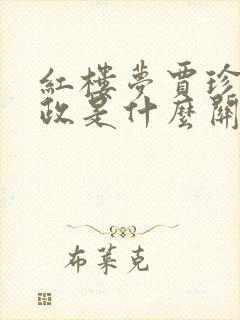 紅樓夢賈珍
政是什麼關
布萊克